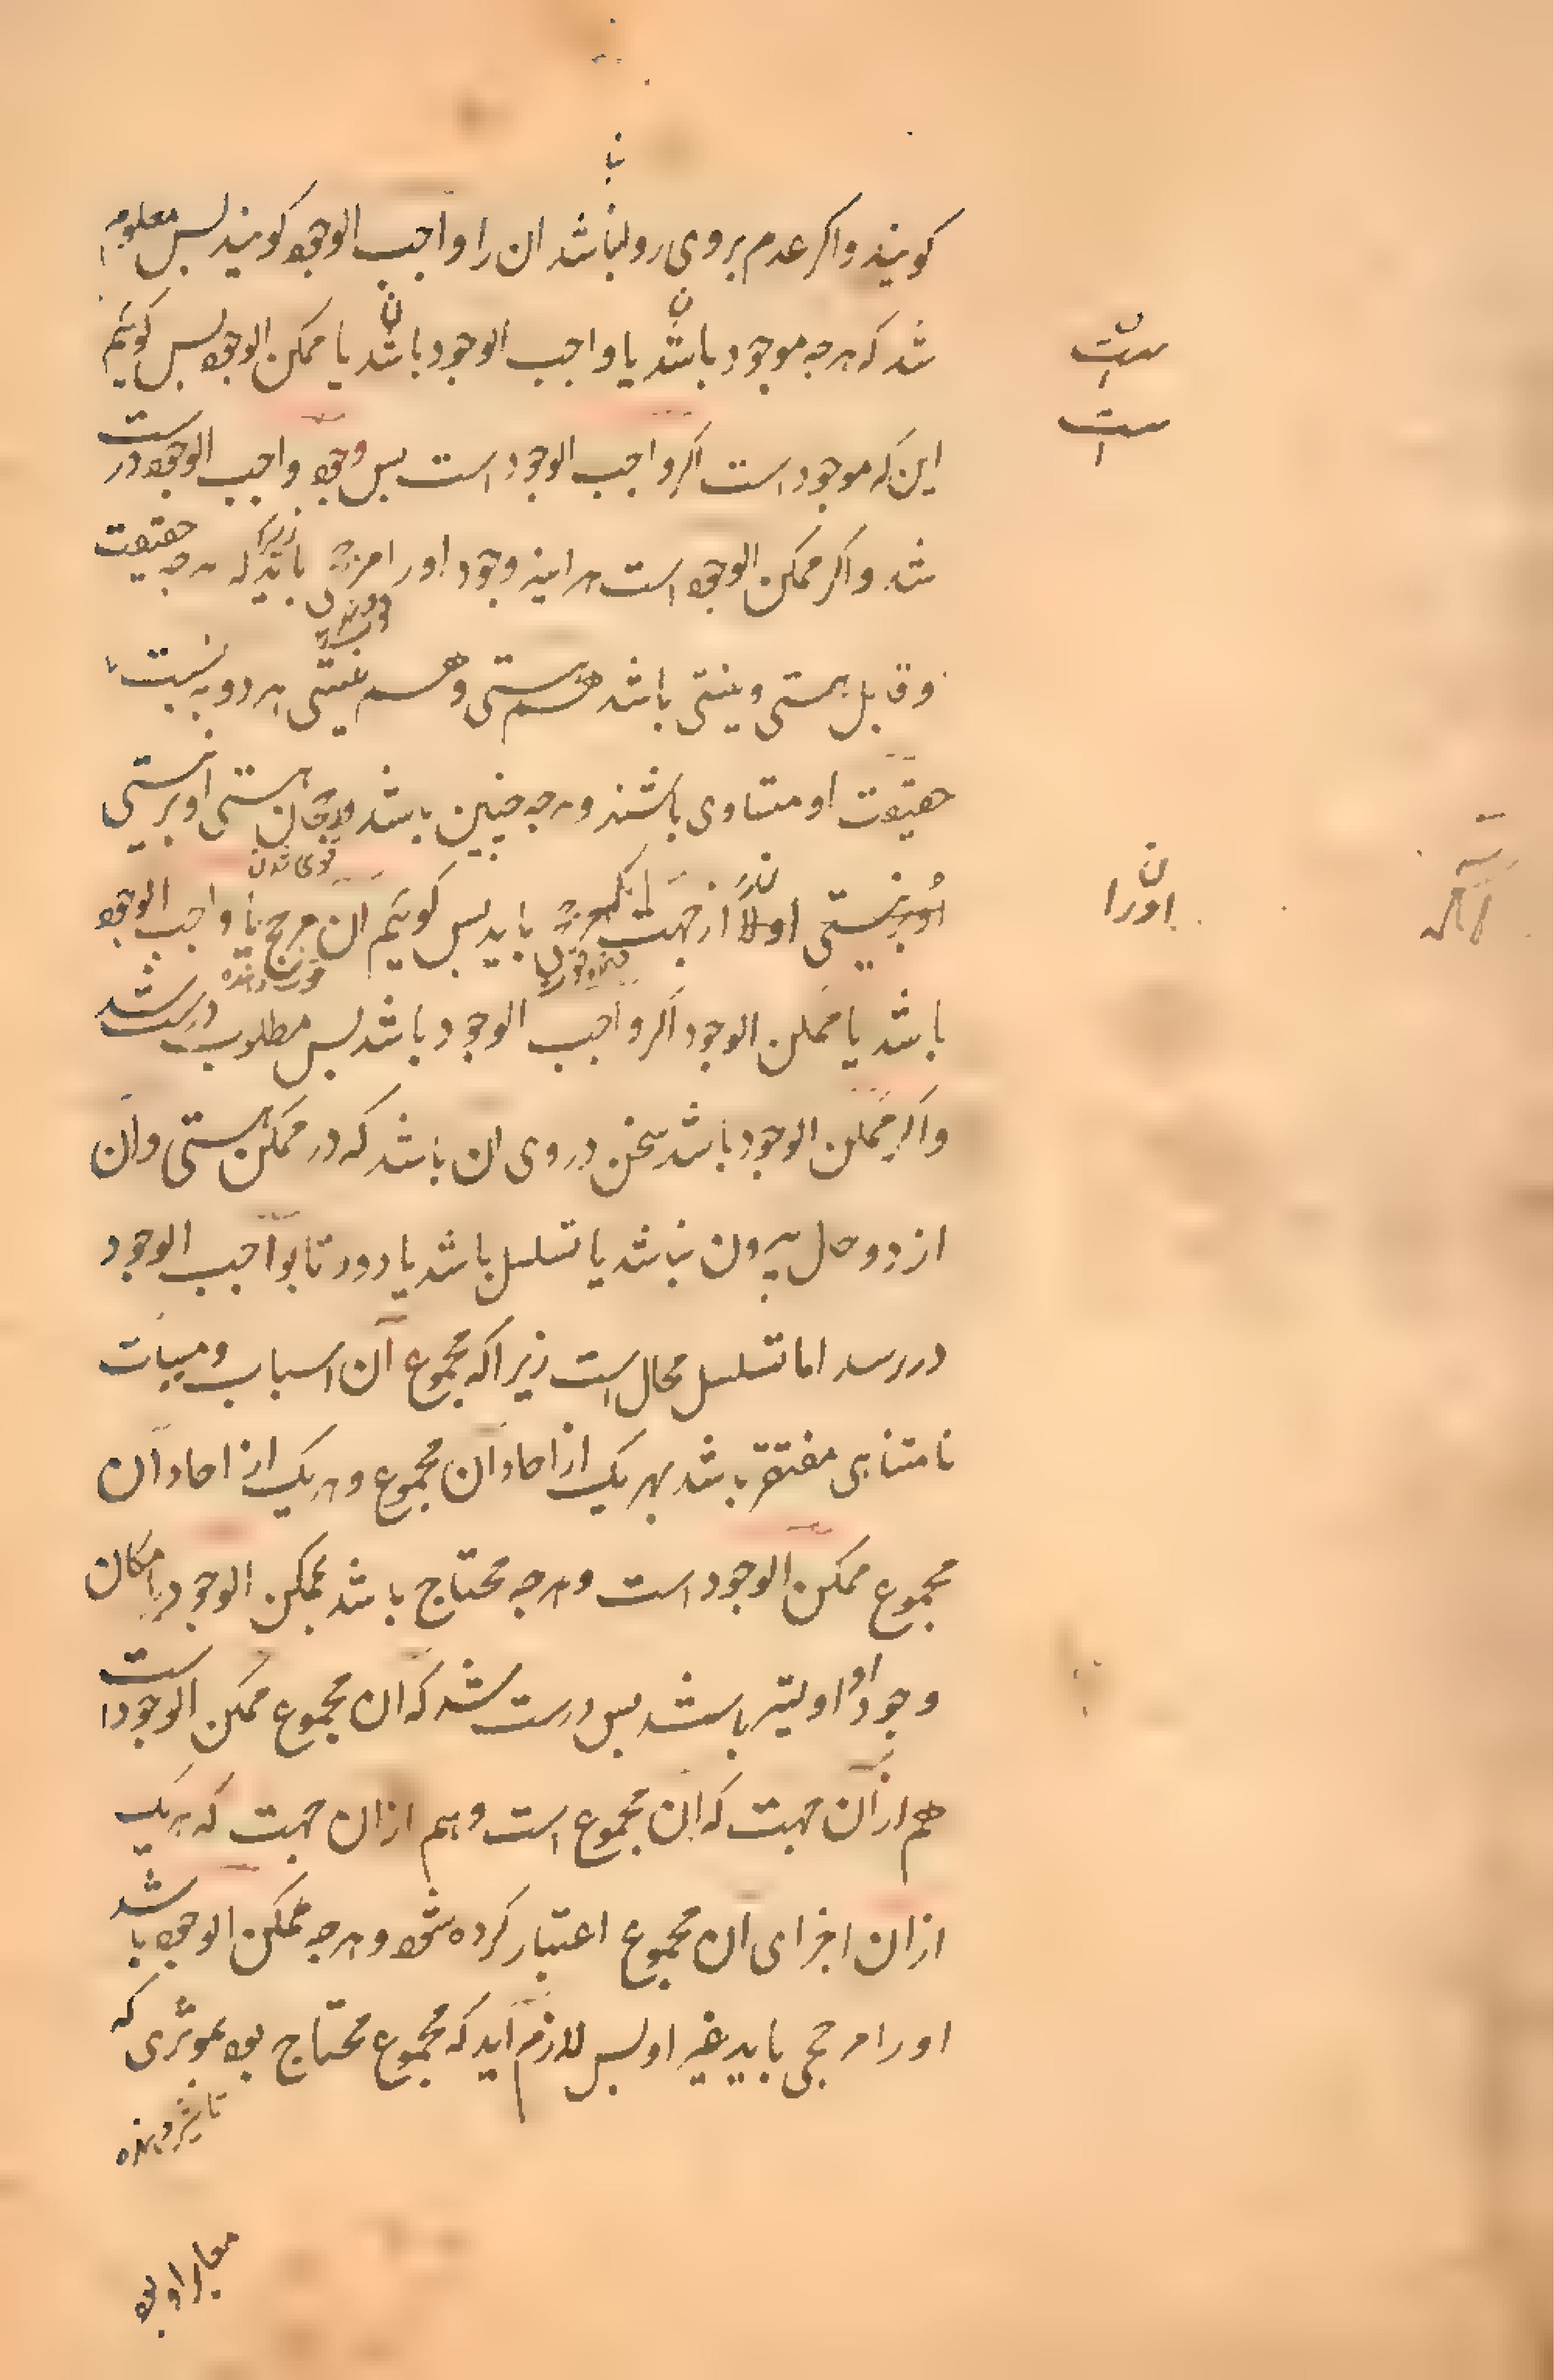 کویند واکر عدم بروی روا نباشد ان را واجب الوجود کویند بس معلوم
شد که هرچه موجود باشد یا واجب الوجود باشد یا ممکن الوجود بس کوئیم
این که موجود است اکر واجب الوجود است بس وجود واجب الوجود درست
شد واکر ممکن الوجود است هراینه وجود اورا مرجح باید زیرا که هرچه حقیقت
وقابل هستی ونیستی باشد هم هستی وهم نیستی هردو به نسبت
حقیقت او متساوی باشند وهرچه چنین باشد رجحان هستی او بر نیستی
او از جهت مرجح باید بس کوئیم ان مرجح یا واجب الوجود
باشد یا ممکن الوجود اکر واجب الوجود باشد بس مطلوب درست شد
واکر ممکن الوجود باشد سخن دروی ان باشد که در ممکن هستی وان
از دو حال بیرون نباشد یا تسلسل باشد یا دور تا بواجب الوجود
دررسد اما تسلسل محال است زیرا که مجموع آن اسباب ومسببات
نامتناهی مفتقر باشد بهر یک از احاد ان مجموع وهر یک از احاد آن
مجموع ممکن الوجود است وهرچه محتاج باشد بممکن الوجود بامکان
وجود او اولیتر باشد بس درست شد که ان مجموع ممکن الوجود است
هم ازآن جهت که ان مجموع است وهم ازان جهت که هر یک
ازان اجزای ان مجموع اعتبار کرده شود وهرچه ممکن الوجود باشد
اورا مرجحی باید غیر او بس لازم آید که مجموع محتاج بود بموثری که
تاثیر دهنده